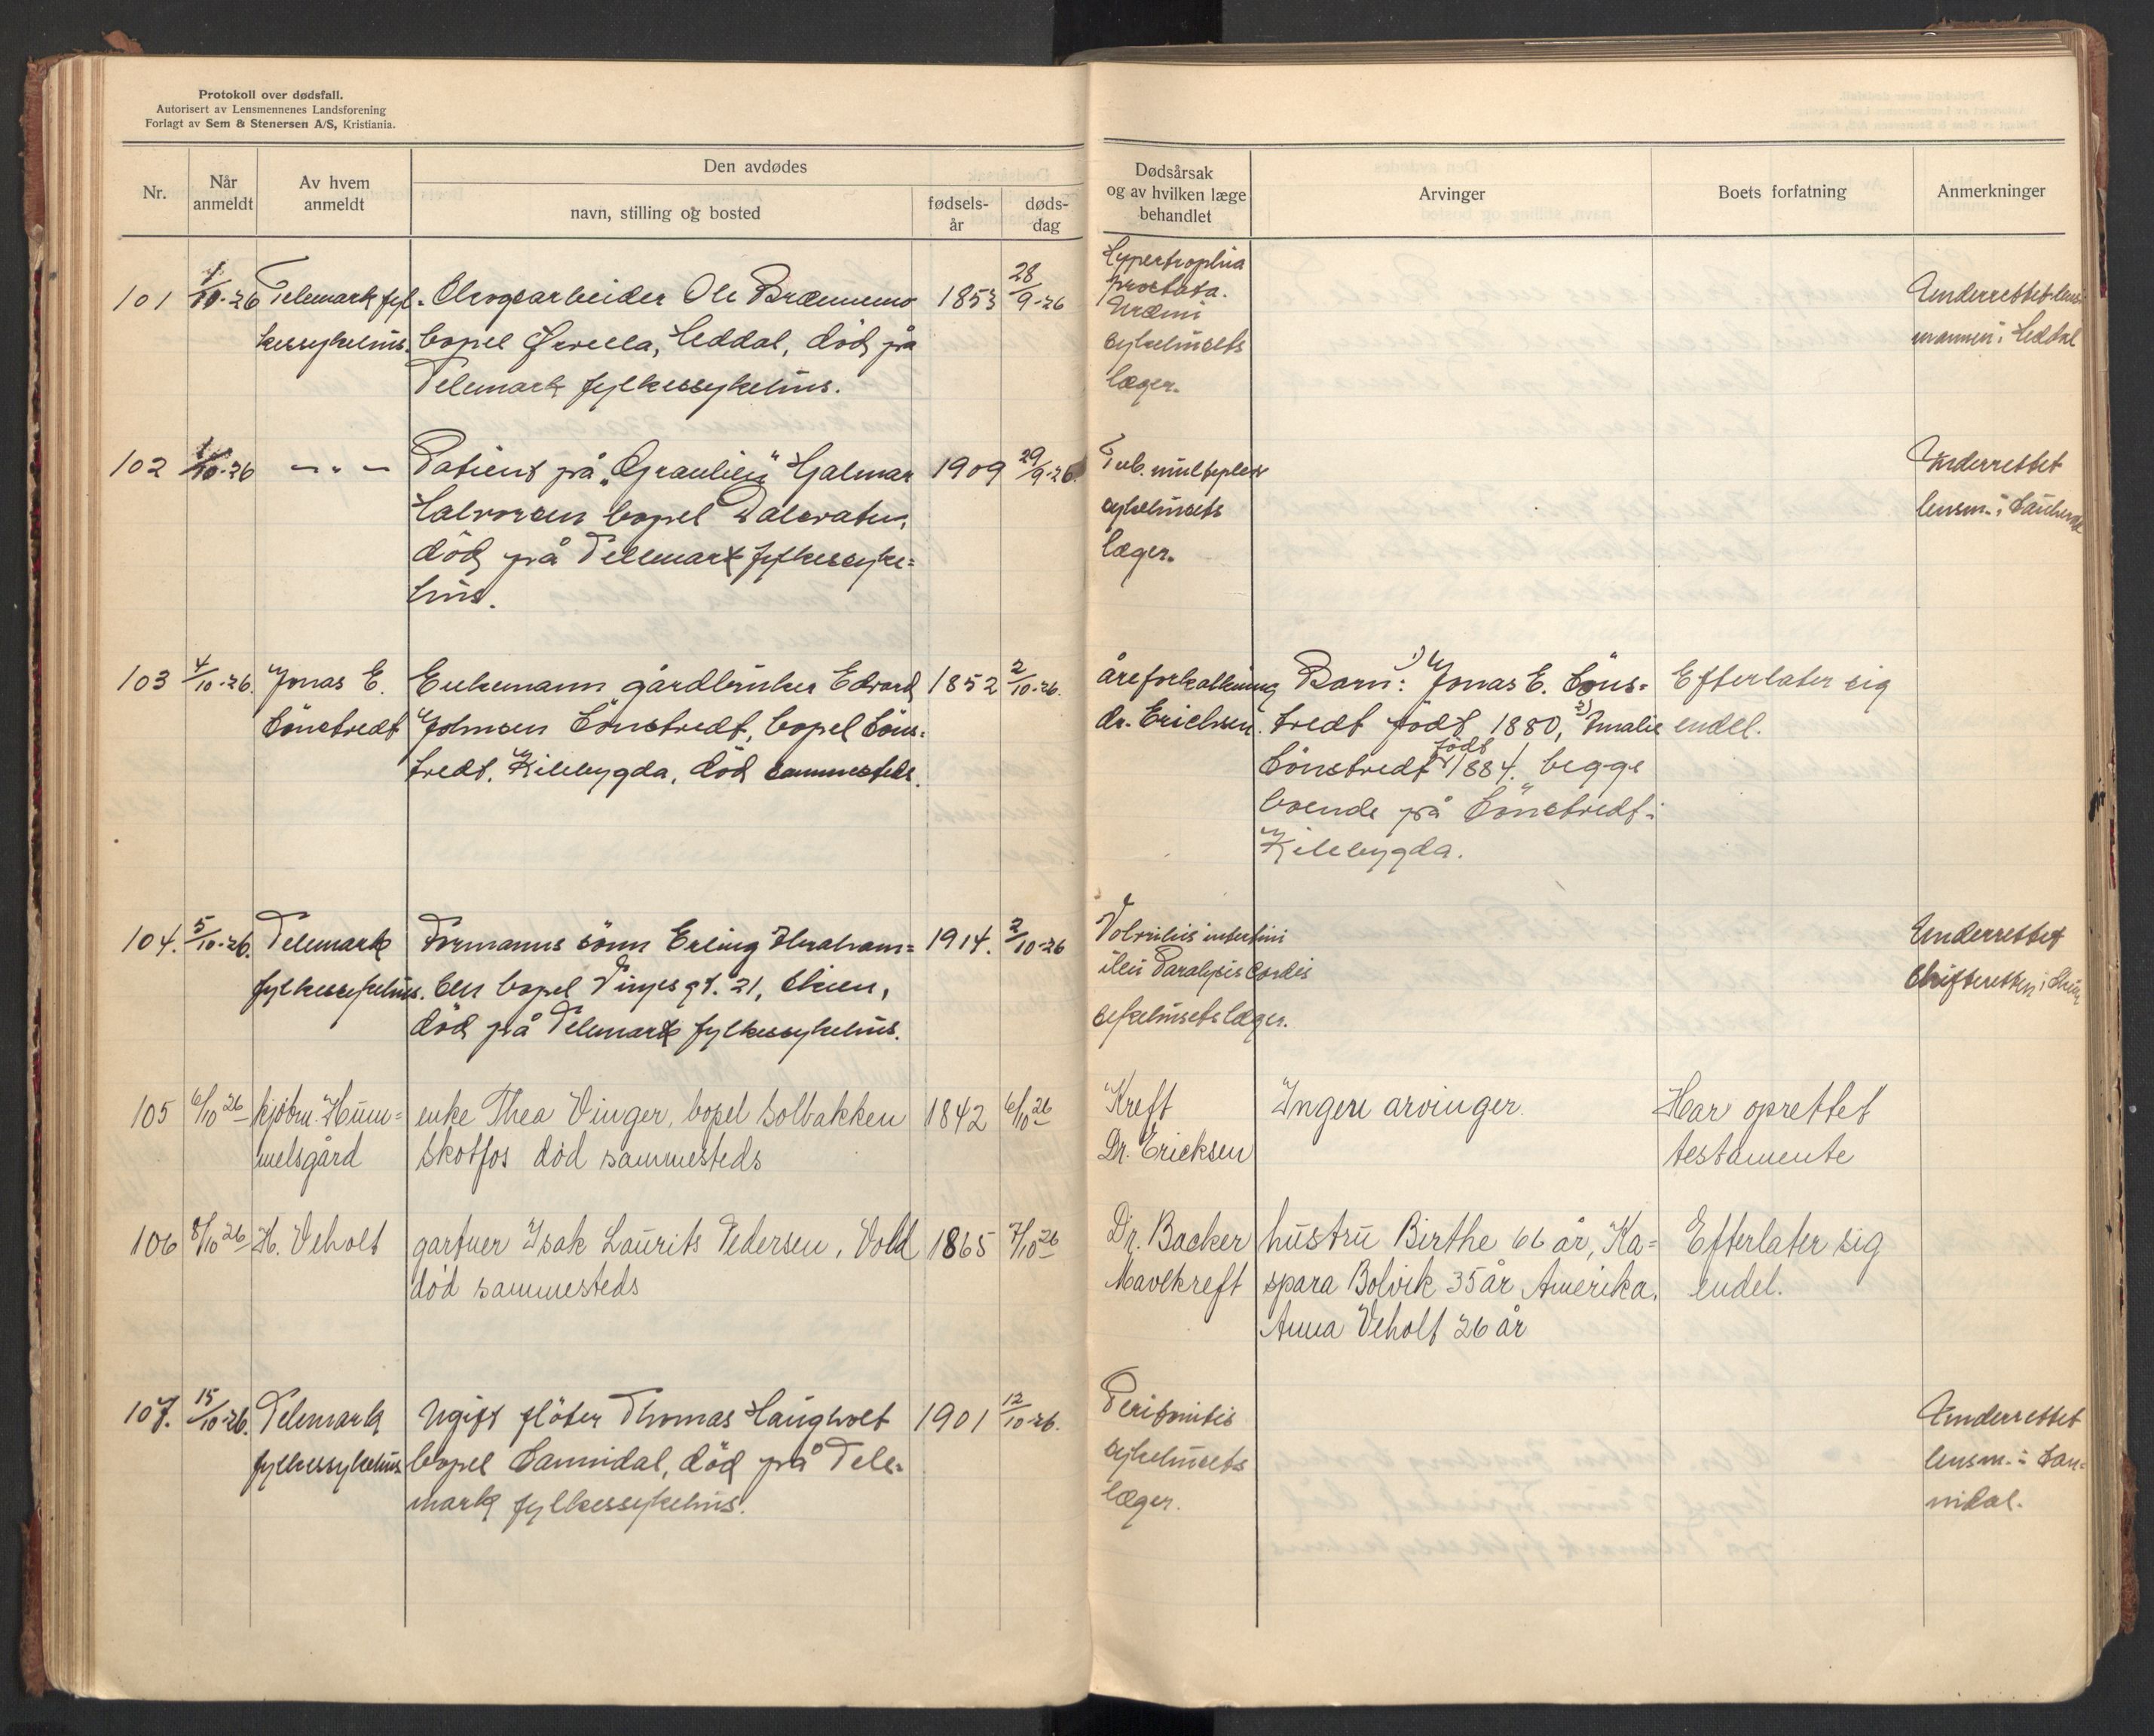 Protokoll over dødsfall.
Autorisert av Lensmennenes Landsforening
Forlagt av Sem & Stenersen A/S, Kristiania.
Nr.
Når anmeldt
Av hvem anmeldt
Den avdødes
navn, stilling og bosted
fødsels-år
døds-dag
Dødsårsak og av hvilken læge behandlet
Arvinger
Boets forfatning
Anmerkninger
101 1/10-26 Telemark fyl- Skogsarbeider Ole 1853 28/9-26 Hypertrophia Underrettet lens-
kessykehus. bopel Heddal, död på prostata. mannen i Heddal
Telemark fylkessykehus. Uræmi
sykehusets
læger.
102 1/10-26 -"- Patient på "Granlien" Hjalmar 1909 29/9-26 Tub. multiplex Underrettet
Halvorsen bopel död på Telemark fylkessyke= sykehusets lensm. i
hus. læger.
103 4/10-26. Jonas E. Enkemann gårdbruker Edvard 1852 2/10-26. åreforkalkning Barn: 1) Jonas E. Löns= Efterlater sig
Lönstredt Johnsen Lönstredt, bopel Löns= dr. Erichsen. tredt födt 1880, 2) Amalie endel.
tredt, Kilebygda, död sammesteds. Lönstredt födt 1884. begge
boende på Lönstredt i
Kilebygda.
104. 5/10-26. Telemark Formanns sönn Erling Abraham= 1914. 2/10-26 Volvulus intestini Underrettet
fylkessykehus. sen bopel Vinjes gt. 21, Skien, ilei Paralysis Cordis Skifteretten i Skien
död på Telemark fylkessykehus. sykehusets læger.
105 6/10 26 kjöbm. Hum= enke Thea Vinger, bopel Solbakken 1842 6/10 26 Kreft Ingen arvinger. Har oprettet
melsgård Skotfos död sammesteds Dr. Ericksen testamente
106 8/10 26 H. Veholt gartner Isak Laurits Pedersen, Vold 1865 7/10 26 Dr. Backer hustru Birthe 66 år, Ka= Efterlater sig
död sammesteds Mavekreft spara Bolvik 35 år Amerika. endel.
Anna Veholt 26 år
107. 15/10-26. Telemark Ugift flöter Thomas Haugholt 1901 12/10-26. Peritonitis Underrettet
fylkessykehus bopel Sannidal, död på Tele= sykehusets lensm. i San=
mark fylkessykehus. læger. nidal.